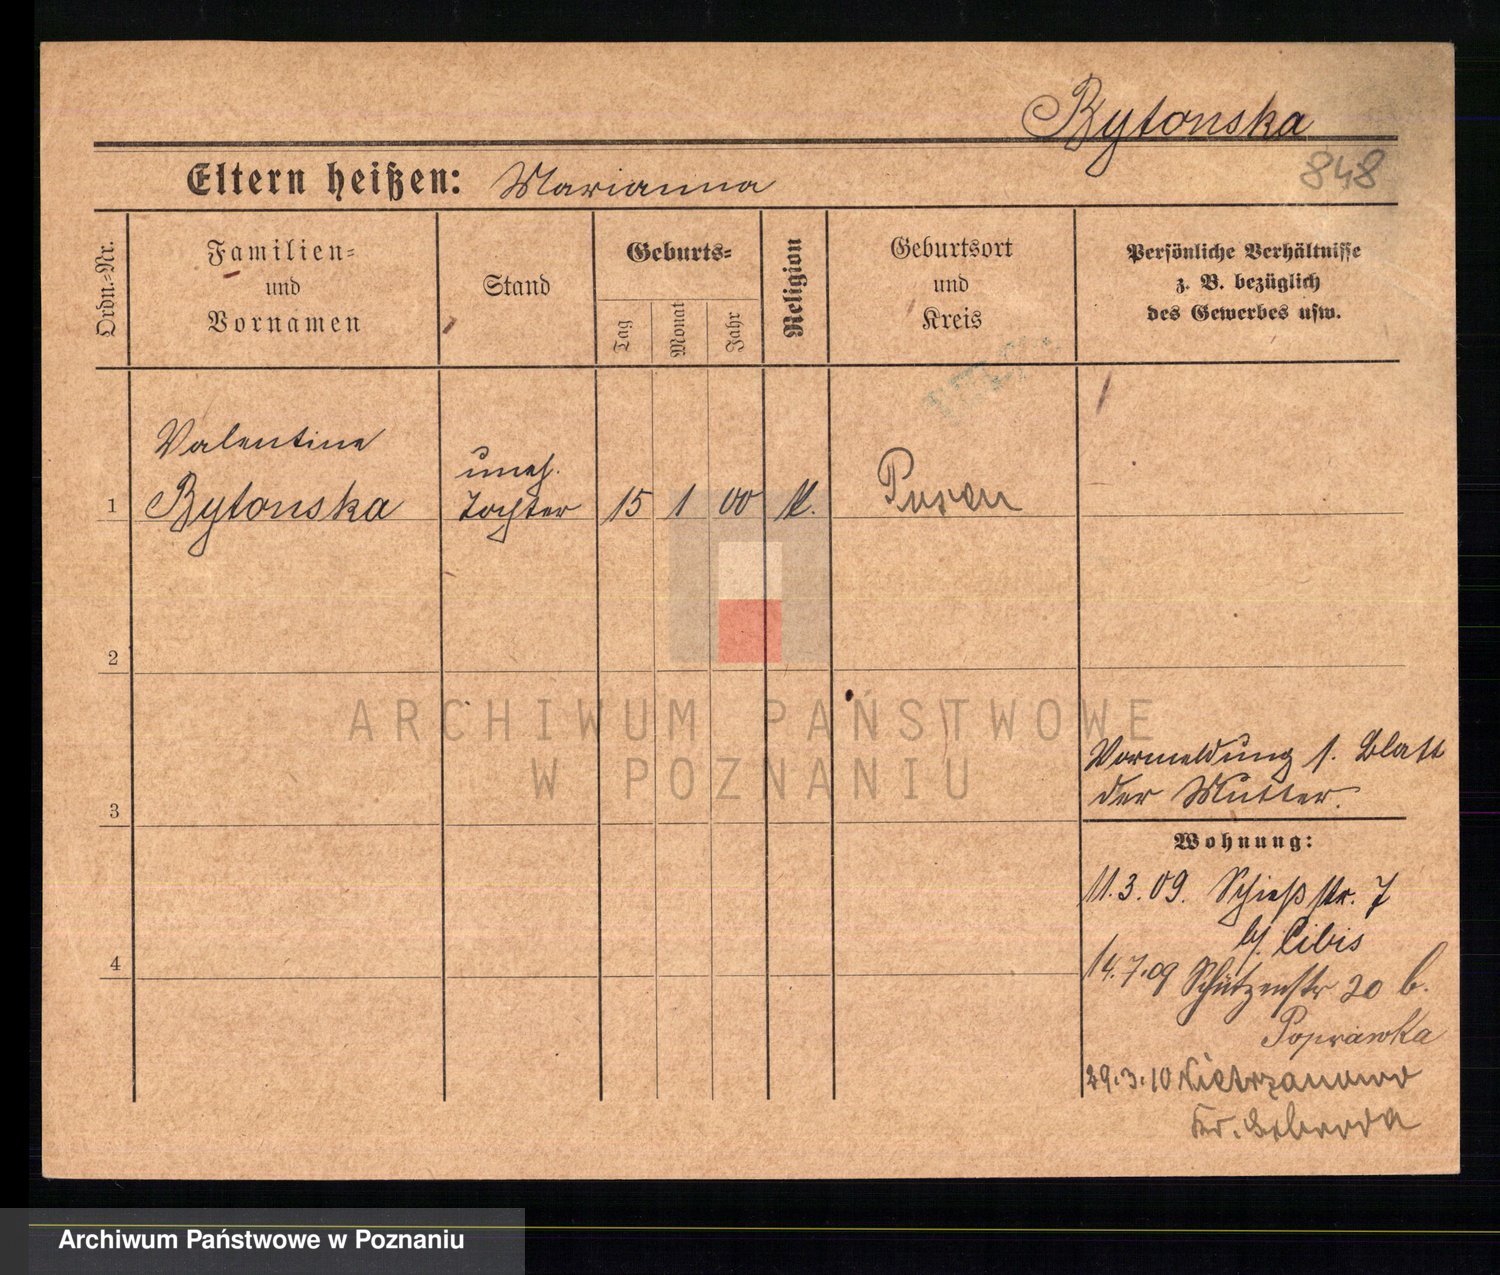 Bytonska
848
Eltern heißen: Marianna
Ordn.-Nr.
Familien-
und
Vornamen
Stand
Geburts-
Tag
Monat
Jahr
Religion
Geburtsort
und
Kreis
Persönliche Verhältnisse
z. B. bezüglich
des Gewerbes usw.
Valentine
uneh.
1 Bytonska Tochter 15 1 00 k. Posen
2
ARCHIWUM PAŃSTWOWE
W POZNANIU
Vormeldung s. Blatt
der Mutter.
3
Wohnung:
11.3.09. Schießstr. 7
bj. Cibis
4
14.7.09 Schützenstr 20 b.
Poprawka
29.3.10 Nietrzanowo
Kr. Schroda
Archiwum Państwowe w Poznaniu